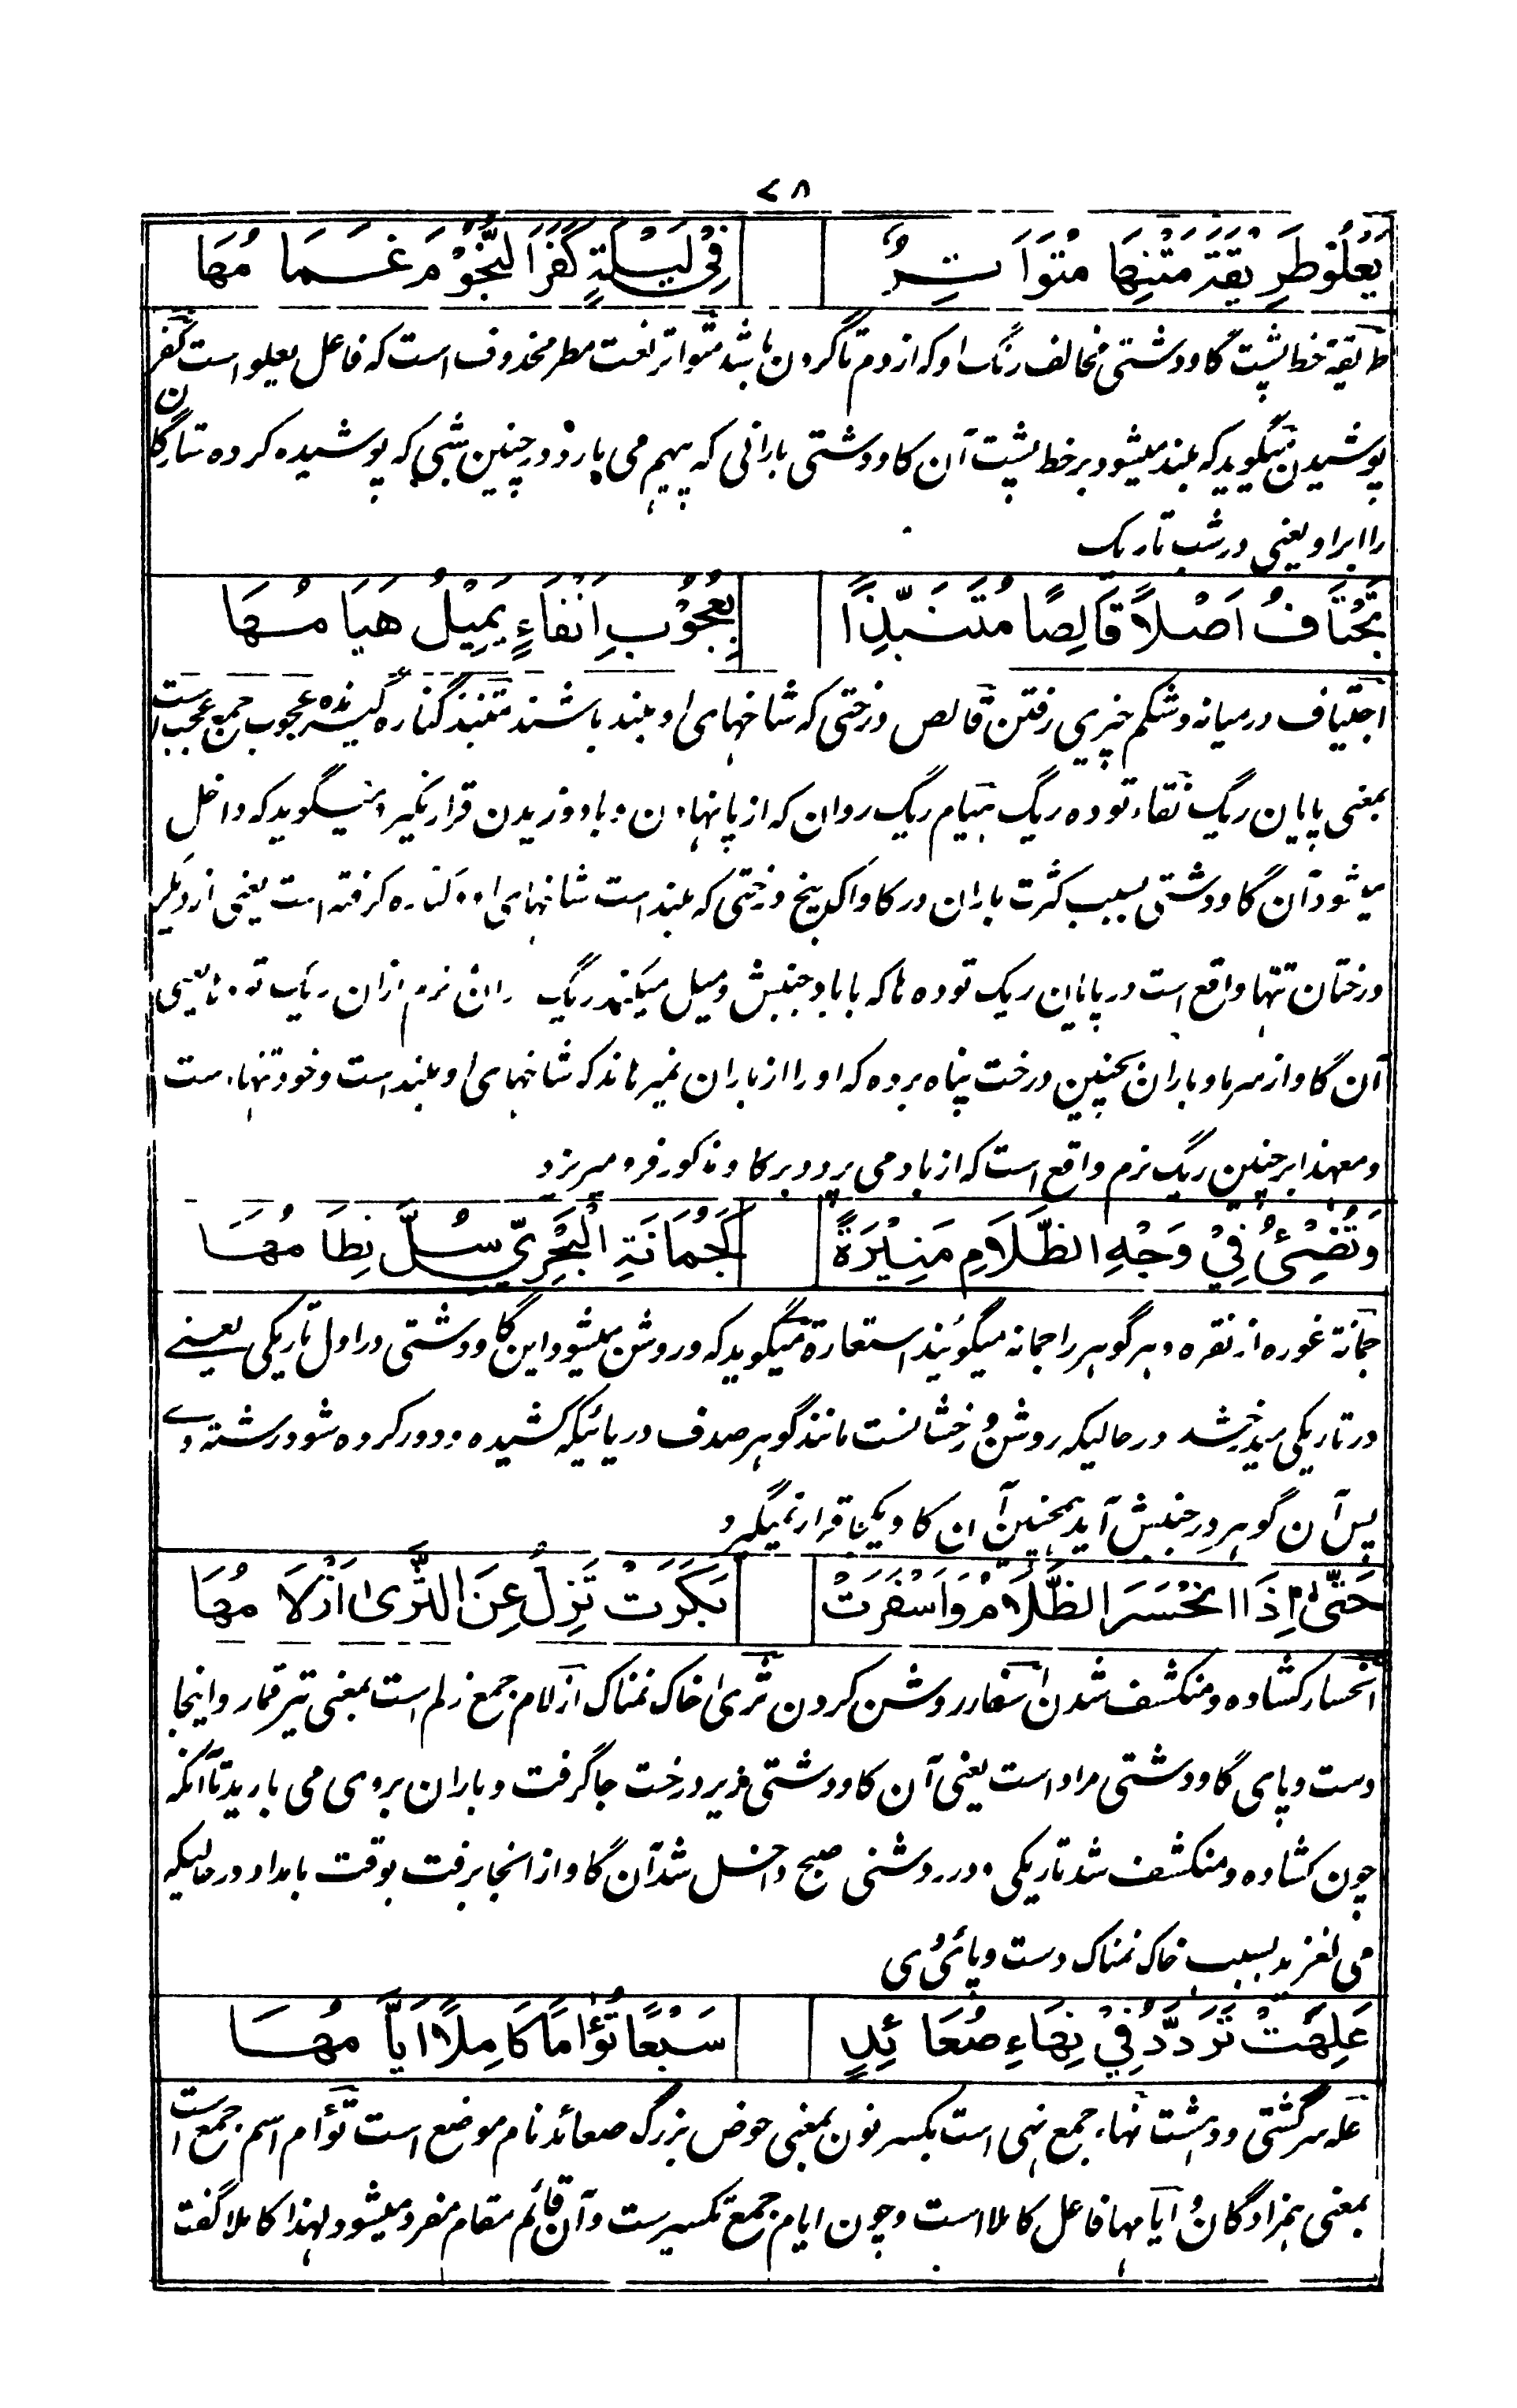 ٧٨
يَعْلُوْ طَرِيْقَةَ مَتْنِهَا مُتَوَاتِرٌ فِيْ لَيْلَةٍ كَفَرَ النُّجُوْمَ غَمَامُهَا
طریقة خط پشت گاو دشتی مخالف رنگ او که از دم تا گردن باشد متواتر نعت مطر محذوف است که فاعل یعلو است کفر
پوشیدن میگوید که بلند میشود بر خط پشت آن گاو دشتی بارانی که پیهم می بارد و در چنین شبی که پوشیده کرده ستارگان
را ابر او یعنی در شب تاریک
تَجْتَافُ اَصْلًا قَالِصًا مُتَنَبِّذًا بِعُجُوْبِ اَنْقَاءٍ يَمِيْلُ هَيَامُهَا
اجتیاف در میانه و شکم چیزی رفتن قالص درختی که شاخهای او بلند باشند متنبذ کناره گیرنده عجوب جمع عجب است
بمعنی پایان ریگ نقاء توده ریگ هیام ریگ روان که از پا نهادن و باد وزیدن قرار نگیرد میگوید که داخل
میشود آن گاو دشتی بسبب کثرت باران در کاواک بیخ درختی که بلند است شاخهای او و کناره گرفته است یعنی از دیگر
درختان تنها واقع است در پایان ریگ توده ها که با باد جنبش و میل میکند ریگ روان نرم ازان ریگ توده ها یعنی
آن گاو از سرما و باران بچنین درخت پناه برده که او را از باران نمیرهاند که شاخهای او بلند است و خود تنها است
و معهذا بر چنین ریگ نرم واقع است که از باد می پرد و بر گاو مذکور فرو میریزد
وَتُضِيْئُ فِيْ وَجْهِ الظَّلَامِ مُنِيْرَةً كَجُمَانَةِ الْبَحْرِيِّ سُلَّ نِظَامُهَا
جمانة غوره از نقره و هر گوهر را جمانه میگویند استعارة میگوید که و روشن میشود این گاو دشتی در اول تاریکی یعنی
در تاریکی میدرخشد در حالیکه روشن و رخشانست مانند گوهر صدف دریائیکه کشیده و دور کرده شود رشته وی
پس آن گوهر در جنبش آید همچنین آن گاو یکجا قرار نمیگیرد
حَتّٰى اِذَا انْحَسَرَ الظَّلَامُ وَاَسْفَرَتْ بَكَرَتْ تَزِلُّ عَنِ الثَّرٰى اَزْلَامُهَا
انحسار کشاده و منکشف شدن اسفار روشن کردن ثری خاک نمناک ازلام جمع زلم است بمعنی تیر قمار و اینجا
دست و پای گاو دشتی مراد است یعنی آن گاو دشتی زیر درخت جا گرفت و باران بروی می بارید تا آنکه
چون کشاده و منکشف شد تاریکی و در روشنی صبح داخل شد آن گاو از انجا برفت بوقت بامداد در حالیکه
می لغزید بسبب خاک نمناک دست و پائی وی
عَلِهَتْ تَرَدَّدُ فِيْ نِهَاءِ صُعَائِدٍ سَبْعًا تُؤَامًا كَامِلًا اَيَّامُهَا
عله سرگشتی و دهشت نهاء جمع نهی است بکسر نون بمعنی حوض بزرگ صعائد نام موضع است تؤام اسم جمع است
بمعنی همزادگان و ایامها فاعل کاملا است و چون ایام جمع تکسیرست و آن قائم مقام مفرد میشود لهذا کاملا گفت